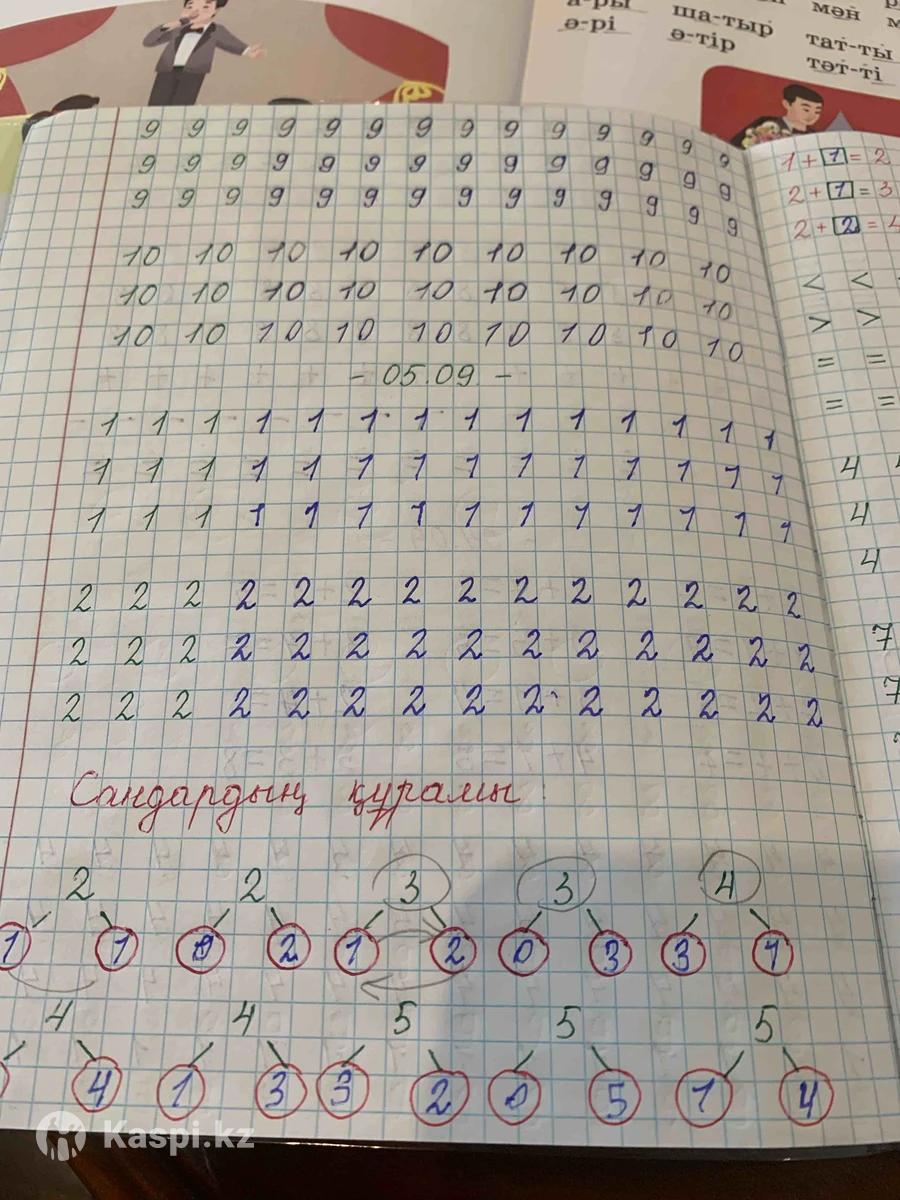 а-ры ша-тыр мән
ә-рі ә-тір тат-ты
тәт-ті
9 9 9 9 9 9 9 9 9 9 9 9 9 9
9 9 9 9 9 9 9 9 9 9 9 9 9 9
9 9 9 9 9 9 9 9 9 9 9 9 9 9
10 10 10 10 10 10 10 10 10
10 10 10 10 10 10 10 10 10
10 10 10 10 10 10 10 10 10
- 05.09 -
1 1 1 1 1 1 1 1 1 1 1 1 1 1
1 1 1 1 1 1 1 1 1 1 1 1 1 1
1 1 1 1 1 1 1 1 1 1 1 1 1 1
2 2 2 2 2 2 2 2 2 2 2 2 2 2
2 2 2 2 2 2 2 2 2 2 2 2 2 2
2 2 2 2 2 2 2 2 2 2 2 2 2 2
Сандардың құрамы:
2 2 3 3 4
1 1 0 2 1 2 0 3 3 1
4 4 5 5 5
4 1 3 3 2 0 5 1 4
1 + 1 = 2
2 + 1 = 3
2 + 2 = 4
< <
> >
= =
= =
4
4
4
7
7
Kaspi.kz